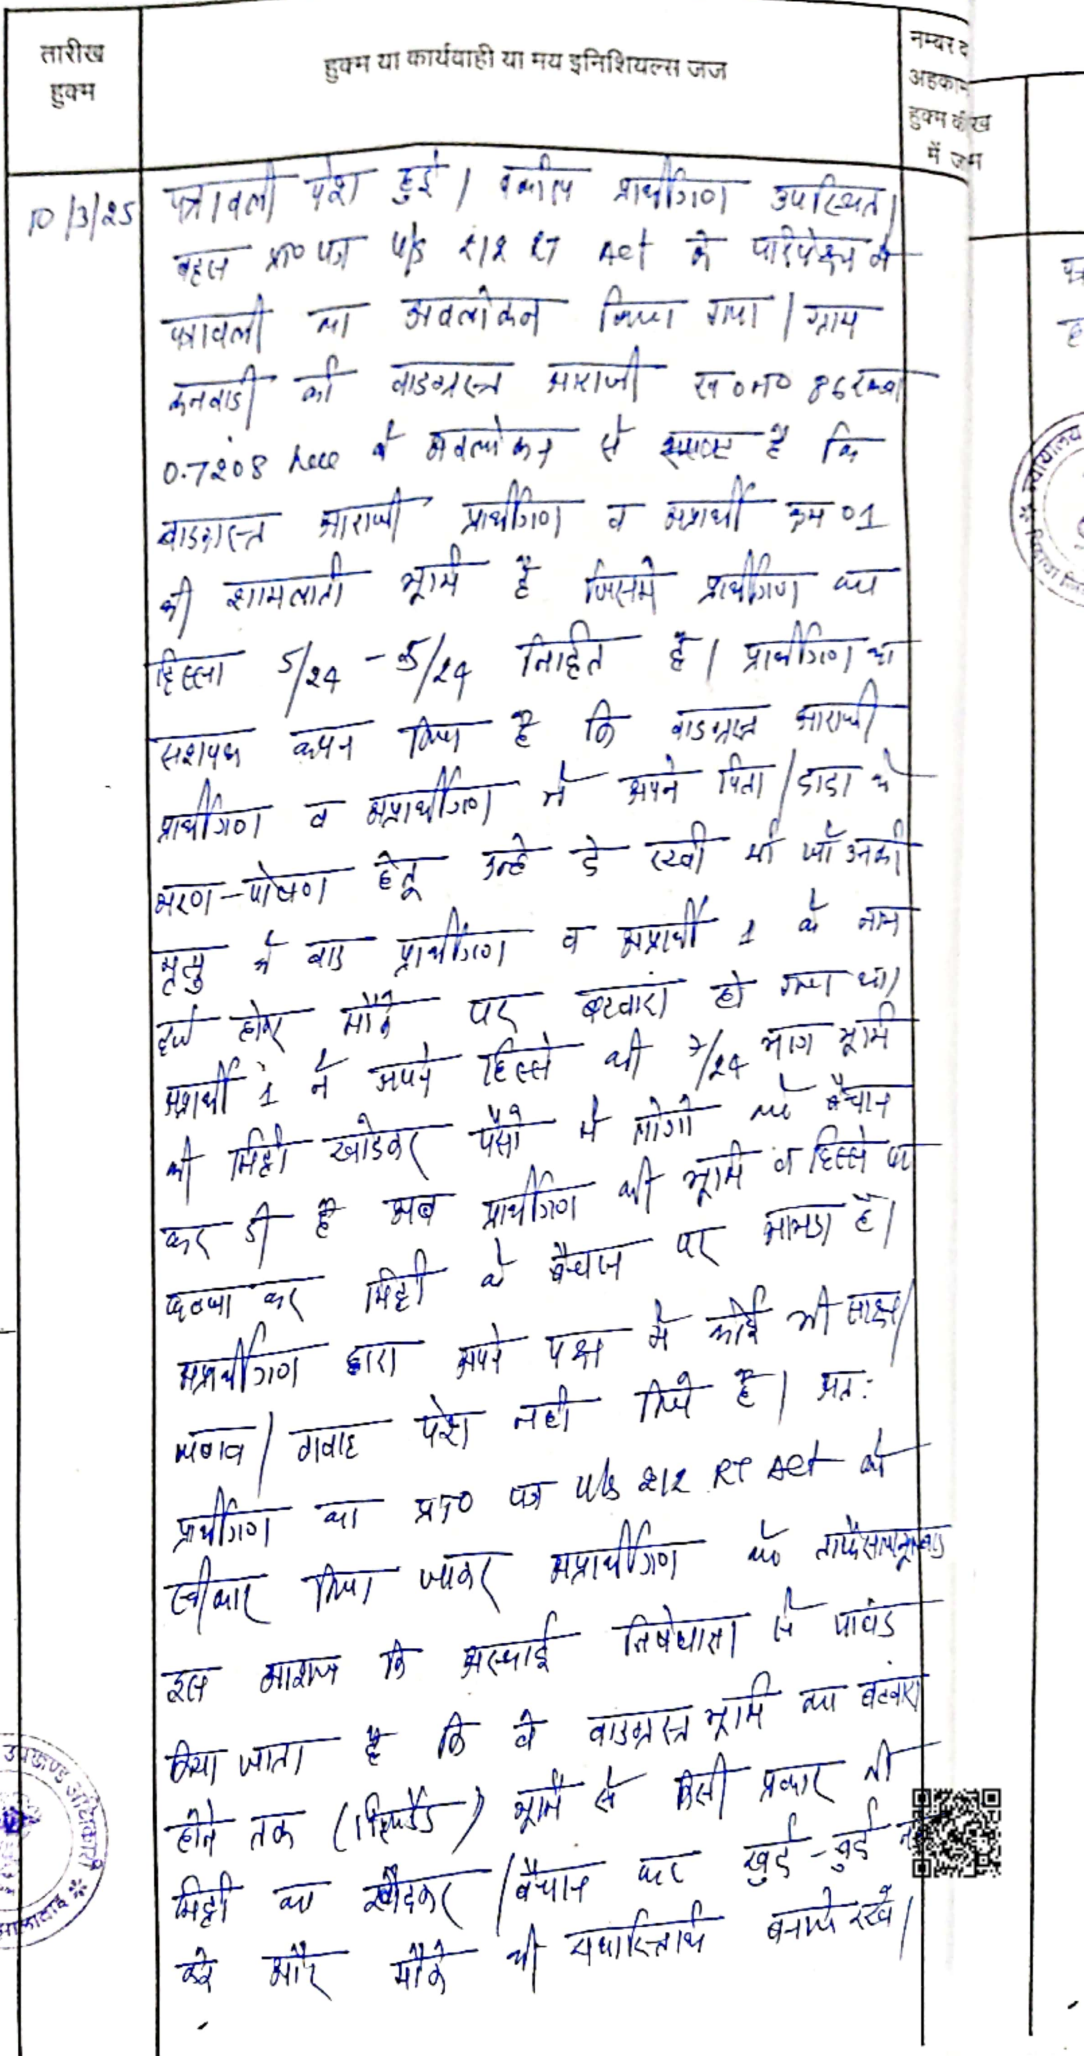 तारीख
हुक्म
हुक्म या कार्यवाही या मय इनिशियल्स जज
नम्बर
अहकाम
हुक्म की
में
10/3/25
पत्रावली पेश हुई। वकील प्रार्थीगण उपस्थित।
बहस प्रा० पत्र u/s 212 RT Act के परिपेक्ष्य में
पत्रावली का अवलोकन किया गया। ग्राम
कनवाडी की वादग्रस्त आराजी ख० न० 86 रकबा
0.7208 hect के अवलोकन से स्पष्ट है कि
वादग्रस्त आराजी प्रार्थीगण व अप्रार्थी क्रम 01
की शामलाती भूमि है जिसमें प्रार्थीगण का
हिस्सा 5/24 - 5/24 निहित है। प्रार्थीगण का
सशपथ कथन किया है कि वादग्रस्त आराजी
प्रार्थीगण व अप्रार्थीगण ने अपने पिता/दादा के
भरण-पोषण हेतू उन्हे दे रखी थी जो उनकी
मृत्यु के बाद प्रार्थीगण व अप्रार्थी 1 के नाम
दर्ज होकर मौके पर बटवारा हो गया था।
अप्रार्थी 1 ने अपने हिस्से की 7/24 भाग भूमि
की मिट्टी खोदकर पैसो मे लोगो को बैचान
कर दी है अब प्रार्थीगण की भूमि व हिस्से पर
कब्जा कर मिट्टी के बैचान पर आमादा है।
अप्रार्थीगण द्वारा अपने पक्ष मे कोई भी साक्ष्य/
जवाब/गवाह पेश नही किये है। अत:
प्रार्थीगण का प्रा० पत्र u/s 212 RT Act को
स्वीकार किया जाकर अप्रार्थीगण को
इस आशय कि अस्थाई निषेधाज्ञा से पाबंद
किया जाता है कि वे वादग्रस्त भूमि का बटवारा
होने तक भूमि से किसी प्रकार की
मिट्टी का खोदकर/बैचान कर खुर्द-बुर्द न
करे और मौके की यथास्तिथि बनाये रखें।
उपखण्ड अधिकारी
न्यायालय